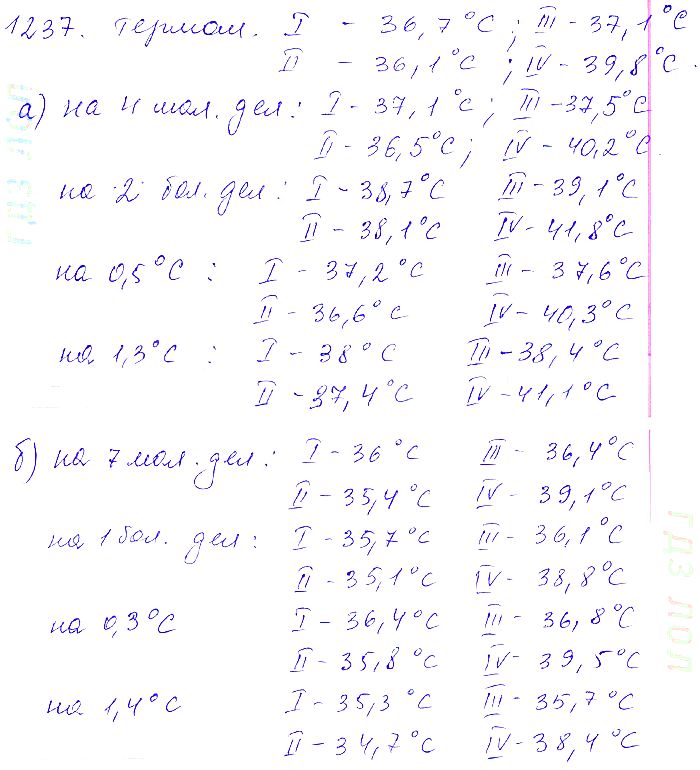 1237. термом. I - 36,7°C ; III - 37,1°C
II - 36,1°C ; IV - 39,8°C.
а) на 4 мал. дел: I - 37,1°C ; III - 37,5°C
II - 36,5°C ; IV - 40,2°C.
на 2 бол. дел: I - 38,7°C III - 39,1°C
II - 38,1°C IV - 41,8°C
на 0,5°C : I - 37,2°C III - 37,6°C
II - 36,6°C IV - 40,3°C
на 1,3°C : I - 38°C III - 38,4°C
II - 37,4°C IV - 41,1°C
б) на 7 мал. дел: I - 36°C III - 36,4°C
II - 35,4°C IV - 39,1°C
на 1 бол. дел: I - 35,7°C III - 36,1°C
II - 35,1°C IV - 38,8°C
на 0,3°C I - 36,4°C III - 36,8°C
II - 35,8°C IV - 39,5°C
на 1,4°C I - 35,3°C III - 35,7°C
II - 34,7°C IV - 38,4°C